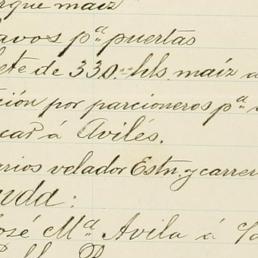 rque maíz
avos pª puertas
ete de 330 hls. maíz a
ción por parcioneros pª
car á Avilés.
arios velador Estn. y carre
nda:
José Mª Avila á